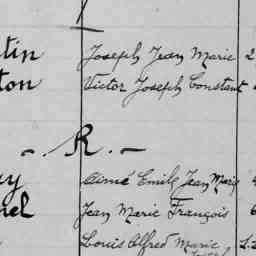 tin Joseph Jean Marie 2
ton Victor Joseph Constant
-. R. -
ay Aimé Emile Jean Marie
nel Jean Marie François 6
Louis Alfred Marie
Joseph